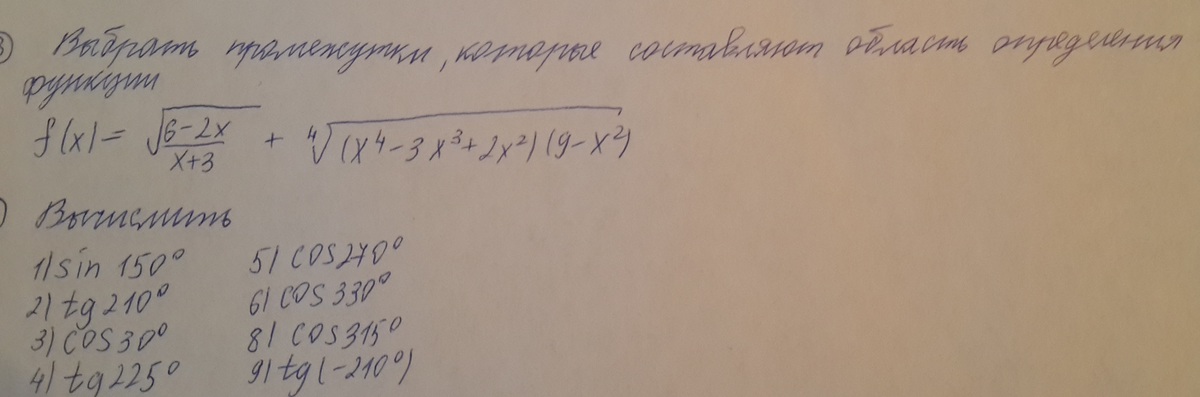 3) Выбрать промежутки, которые составляют область определения
функции
f(x) = √((6-2x)/(x+3)) + ⁴√((x⁴-3x³+2x²)(9-x²))
) Вычислить
1) sin 150° 5) cos 270°
2) tg 210° 6) cos 330°
3) cos 30° 8) cos 315°
4) tg 225° 9) tg(-210°)